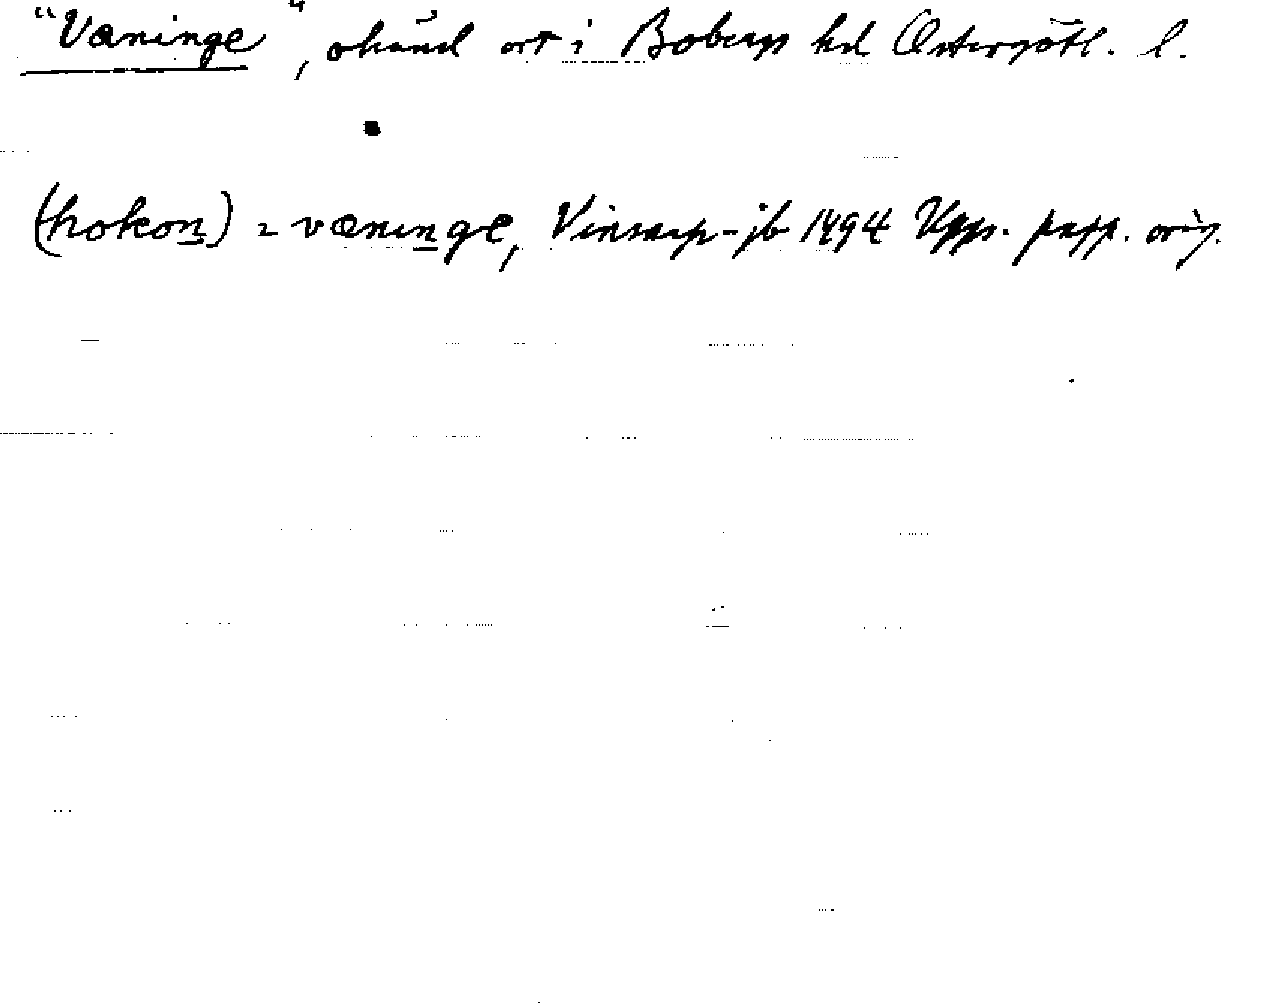 "Væninge", okänd ort i Bobergs hd Östergötl. l.
(hokon) i væninge, Vinstorp-jb 1494 Upps. papp. orig.